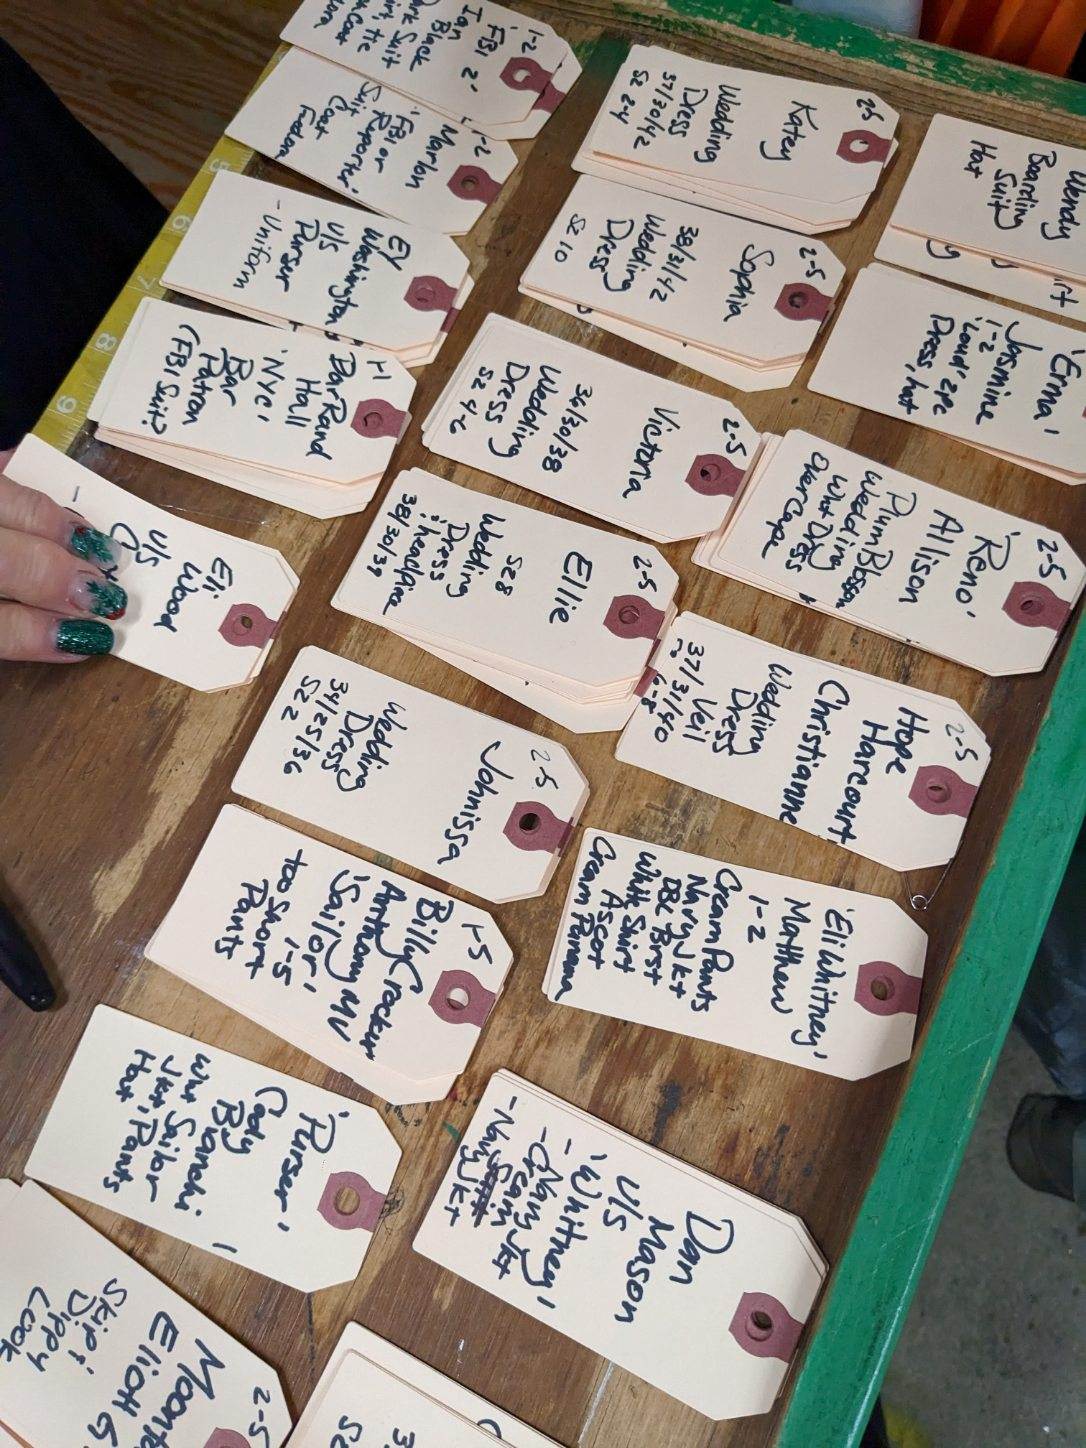 1-2
Ian
'FBI 2'
Black
Suit
1-2
Marlon
'FBI or
Reporter'
Suit
Coat
Fedora
EV
Washington
U/S
Purser
- Uniform
1-1
Hall
'NYC'
Bar
Patron
(FBI Suit?)
Eli
Wood
U/S
2-5
Katey
Wedding
Dress
37/30/42
SZ 2-4
2-5
Sophia
38/31/42
Wedding
Dress
SZ 10
2-5
Victoria
36/30/38
Wedding
Dress
SZ 4-6
2-5
Ellie
SZ 8
Wedding
Dress
: headpiece
38/30/39
2-5
Johnissa
Wedding
Dress
34/25/36
SZ 2
1-5
Billy Crocker
Anthony MV
'Sailor'
1-5
too Short
Pants
'Purser'
Cody
Bianchi
Wht Sailor
Jkt, Pants
Hat
2-5
Elioth G
'Skip'
Dippy
Cook
Wendy
Boarding
Suit
Hat
'Erna'
Jasmine
1-2
'Loud' 2pc
Dress, hat
2-5
'Reno'
Allison
Plum Blossom
Wedding
Wht Dress
Over Cape
2-5
Hope
Harcourt
Christianne
Wedding
Dress
Veil
37/31/40
6-8
'Eli Whitney'
Matthew
1-2
Cream Pants
Navy Jkt
DBL Brst
White Shirt
Ascot
Cream Panama
Dan
Mason
U/S
'Whitney'
- Navy Jkt
- Cream
- Navy Jkt
5
6
7
8
9